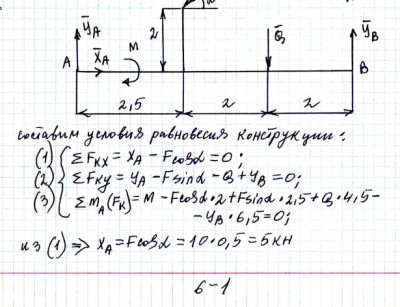 α
ȳA
2
Q̄
ȳB
A
X̄A
M
B
2,5
2
2
составим условия равновесия конструкции:
(1) { ΣFкх = XA - Fcosα = 0;
(2) { ΣFку = YA - Fsinα - Q + YB = 0;
(3) { ΣmA(Fк) = M - Fcosα·2 + Fsinα·2,5 + Q·4,5 -
- YB·6,5 = 0;
из (1) => XA = Fcosα = 10·0,5 = 5кН
6-1